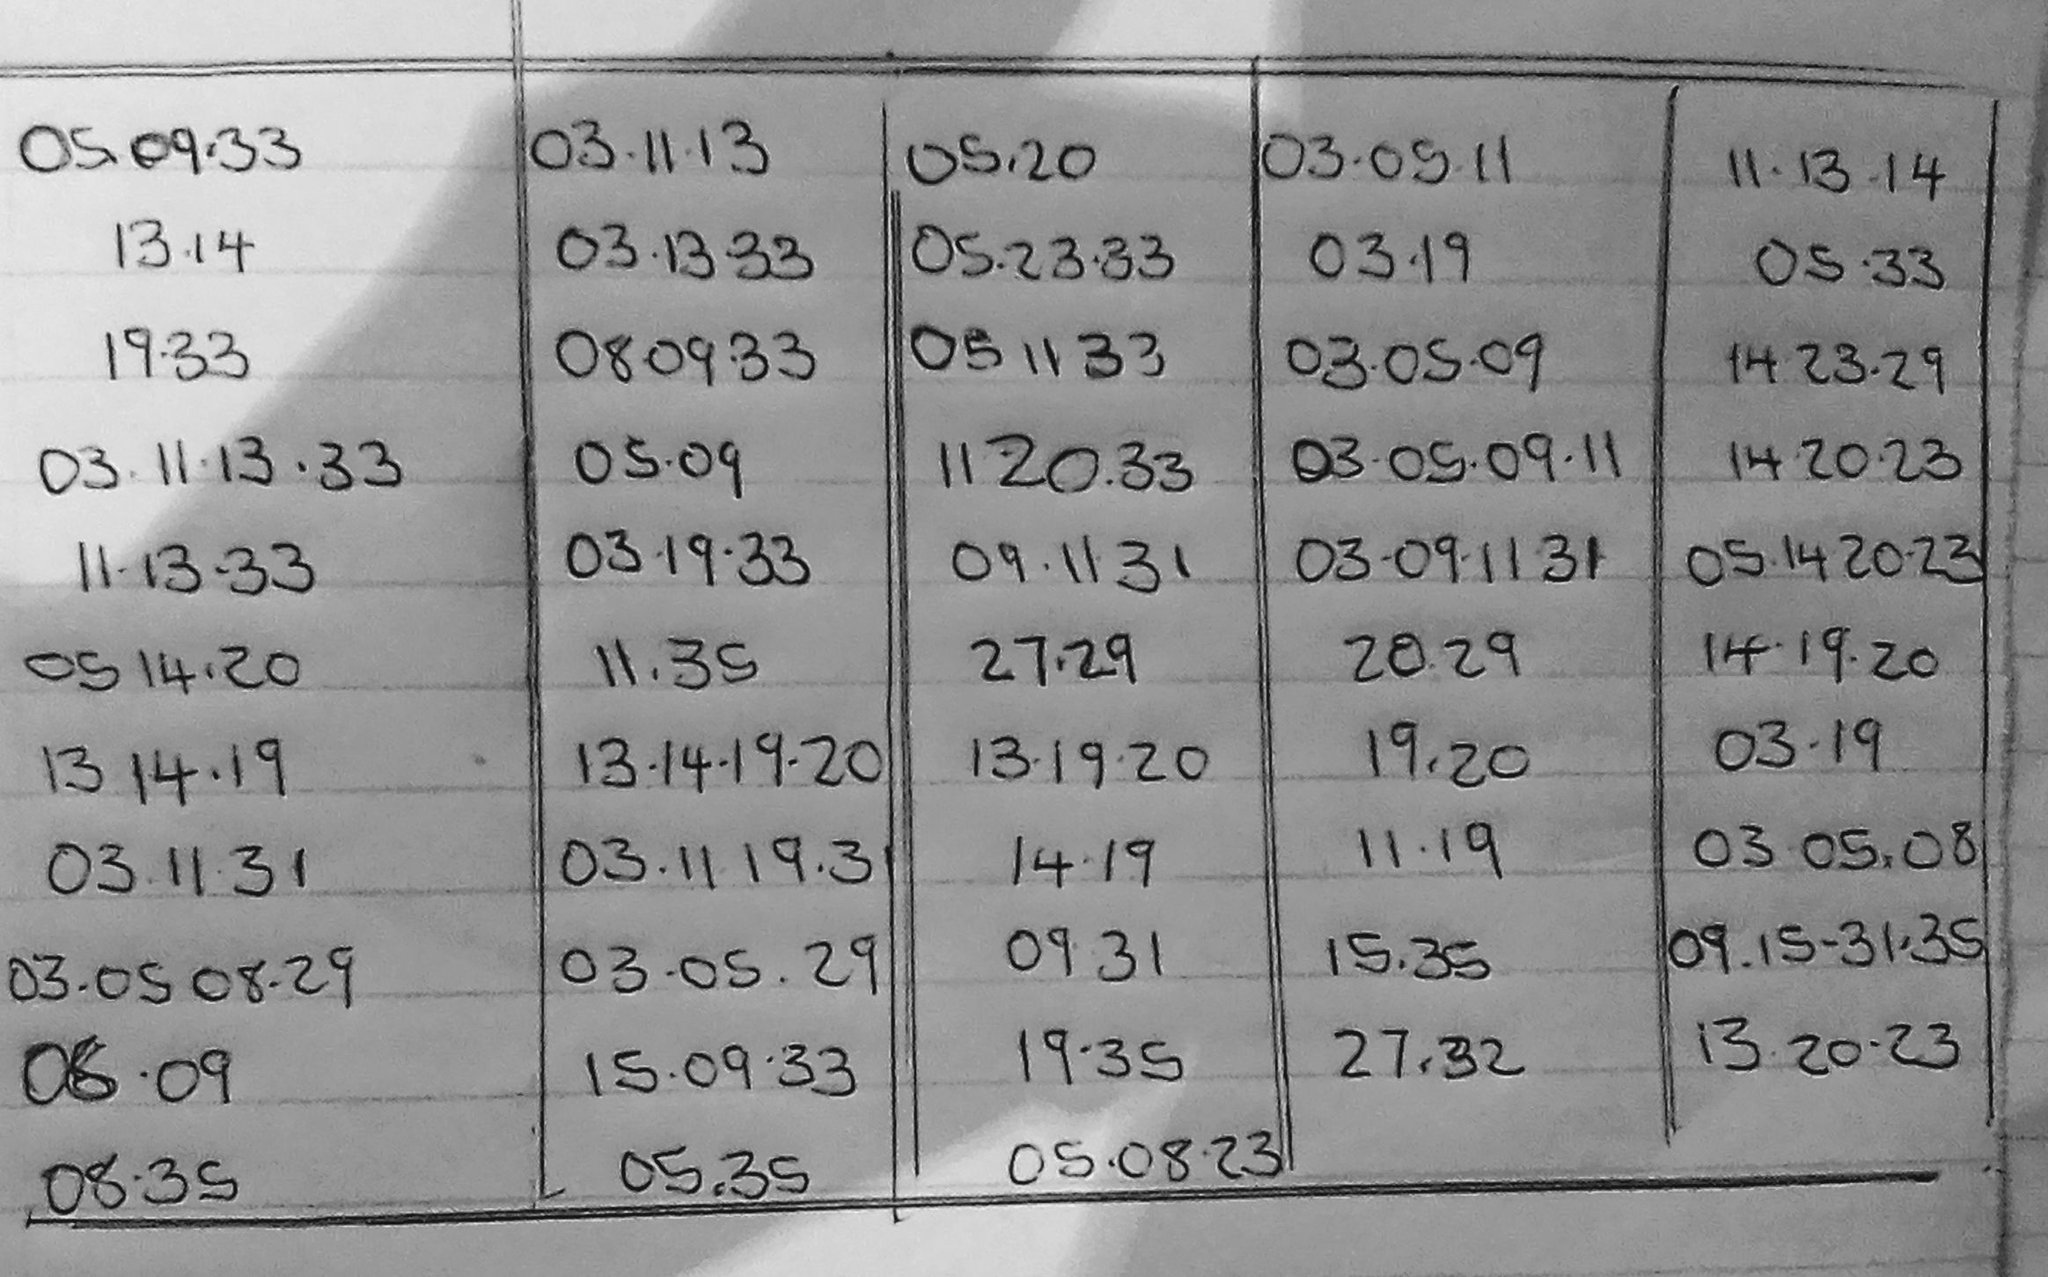 05.09.33 03.11.13 05.20 03.05.11 11.13.14
13.14 03.13.33 05.23.33 03.19 05.33
19.33 08 09.33 05 11 33 03.05.09 14 23.29
03.11.13.33 05.09 11 20.33 03.05.09.11 14 20.23
11.13.33 03.19.33 09.11 31 03.09.11 31 05.14 20.23
05 14.20 11.35 27.29 20.29 14.19.20
13 14.19 13.14.19.20 13.19.20 19.20 03.19
03.11 31 03.11 19.31 14.19 11.19 03 05.08
03.05 08.29 03.05.29 09 31 15.35 09.15-31.35
08.09 15.09.33 19.35 27.32 13.20.23
08.35 05.35 05.08.23